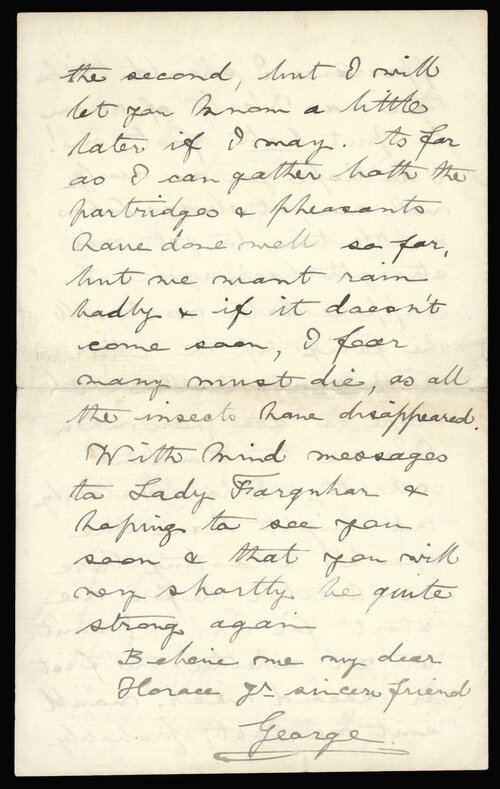 the second, but I will
let you know a little
later if I may. As far
as I can gather both the
partridges & pheasants
have done well so far,
but we want rain
badly & if it doesn't
come soon, I fear
many must die, as all
the insects have disappeared.
With kind messages
to Lady Farquhar &
hoping to see you
soon & that you will
very shortly be quite
strong again
Believe me my dear
Horace yr. sincere friend
George.